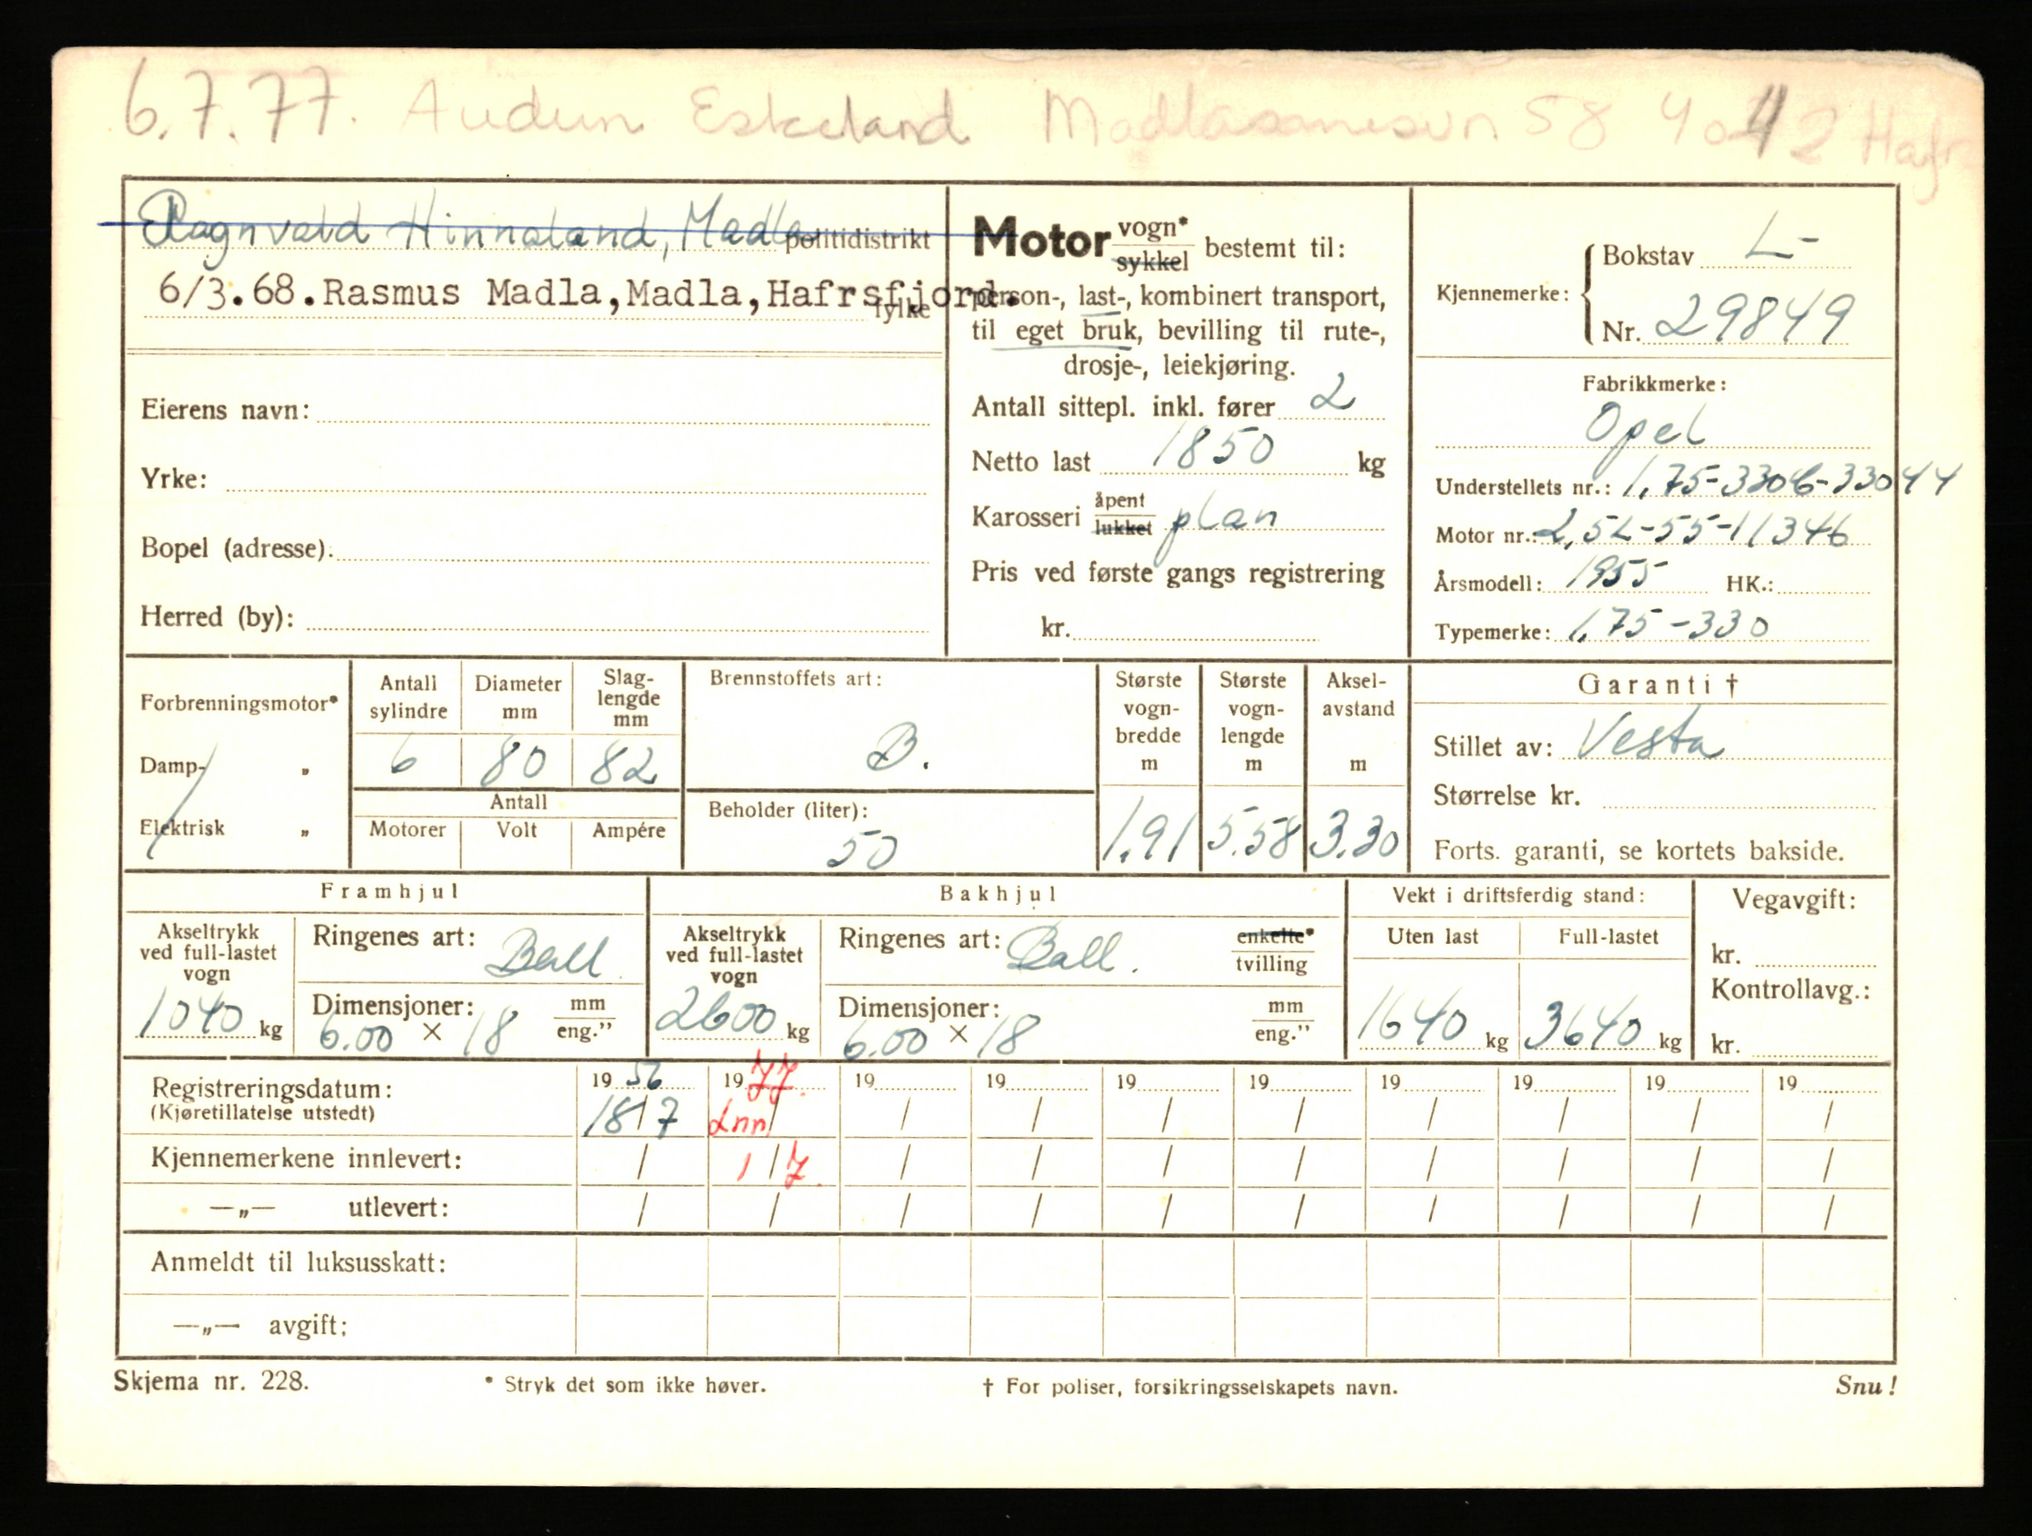 6.7.77. Audun Eskeland 58 4042 Hafr
Ragnvald Hinnaland, Madla politidistrikt
6/3.68. Rasmus Madla, Madla, Hafrsfjord. fylke
Eierens navn:
Yrke:
Bopel (adresse):
Herred (by):
Motor vogn* / sykkel bestemt til:
person-, last-, kombinert transport,
til eget bruk, bevilling til rute-,
drosje-, leiekjøring.
Antall sittepl. inkl. fører 2
Netto last 1850 kg
Karosseri åpent / lukket plan
Pris ved første gangs registrering
kr.
Kjennemerke: Bokstav L-
Nr. 29849
Fabrikkmerke:
Opel
Understellets nr.: 1,75-3306-33044
Motor nr.: 2,5L-55-11346
Årsmodell: 1955 HK.:
Typemerke: 1,75-330
Forbrenningsmotor*
Damp- „
Elektrisk „
Antall sylindre 6
Diameter mm 80
Slag-lengde mm 82
Antall
Motorer Volt Ampére
Brennstoffets art:
B.
Beholder (liter):
50
Største vogn-bredde m 1.91
Største vogn-lengde m 5.58
Aksel-avstand m 3.30
Garanti †
Stillet av: Vesta
Størrelse kr.
Forts. garanti, se kortets bakside.
Framhjul
Akseltrykk ved full-lastet vogn 1040 kg
Ringenes art: Ball
Dimensjoner: 6.00 × 18 mm / eng."
Bakhjul
Akseltrykk ved full-lastet vogn 2600 kg
Ringenes art: Ball. enkelte* / tvilling
Dimensjoner: 6.00 × 18 mm / eng."
Vekt i driftsferdig stand:
Uten last Full-lastet
1640 kg 3640 kg
Vegavgift:
kr.
Kontrollavg.:
kr.
Registreringsdatum: 19 56 19 77. 19 19 19 19 19 19 19 19
(Kjøretillatelse utstedt) 18/7 Lnn / / / / / / / / /
Kjennemerkene innlevert: / 1/7. / / / / / / / /
—„— utlevert: / / / / / / / / / /
Anmeldt til luksusskatt:
—„— avgift:
Skjema nr. 228. * Stryk det som ikke høver. † For poliser, forsikringsselskapets navn. Snu!